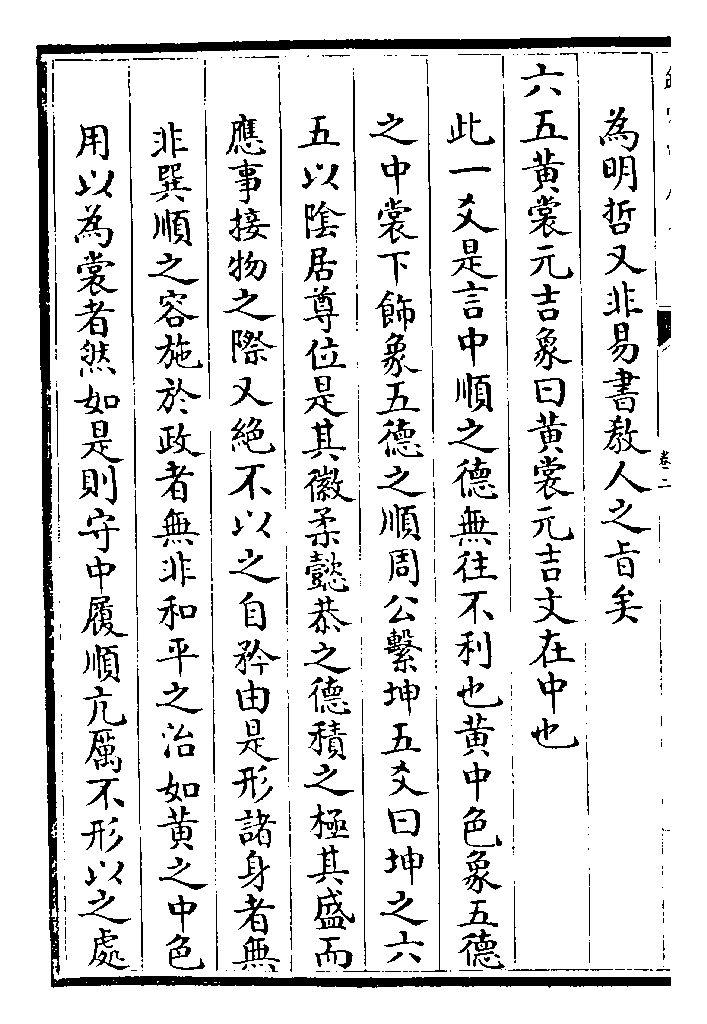 卷二
為明哲又非易書教人之㫖矣
六五黃裳元吉象曰黃裳元吉文在中也
此一爻是言中順之德無往不利也黃中色象五德
之中裳下飾象五德之順周公繫坤五爻曰坤之六
五以隂居尊位是其徽柔懿恭之德積之極其盛而
應事接物之際又絕不以之自矜由是形諸身者無
非巽順之容施於政者無非和平之治如黃之中色
用以為裳者然如是則守中履順亢厲不形以之處